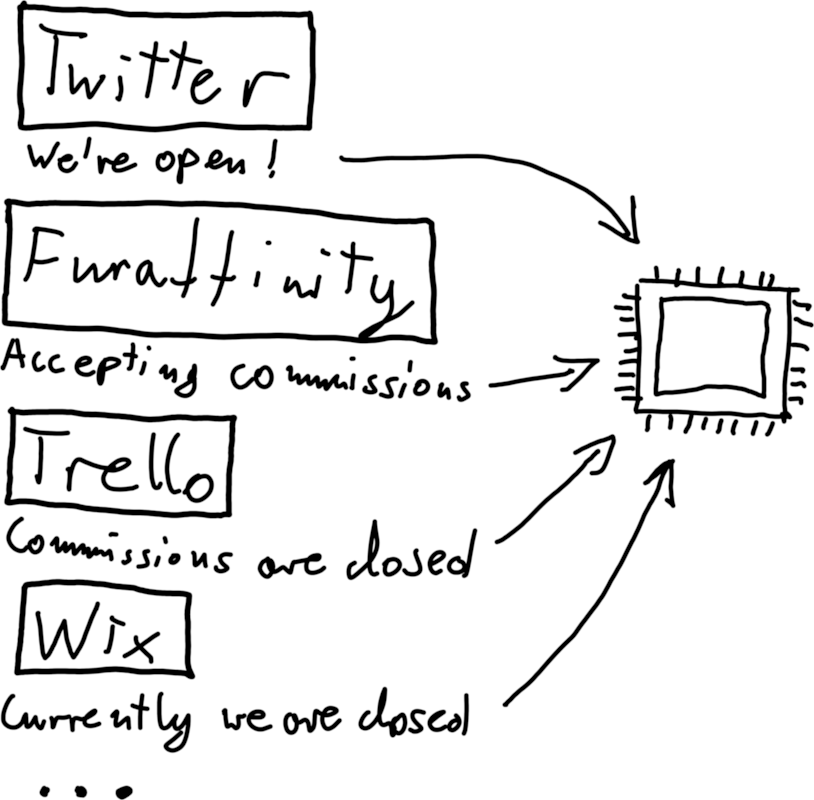 Twitter
We're open!
Furaffinity
Accepting commissions
Trello
Commissions are closed
Wix
Currently we are closed
...